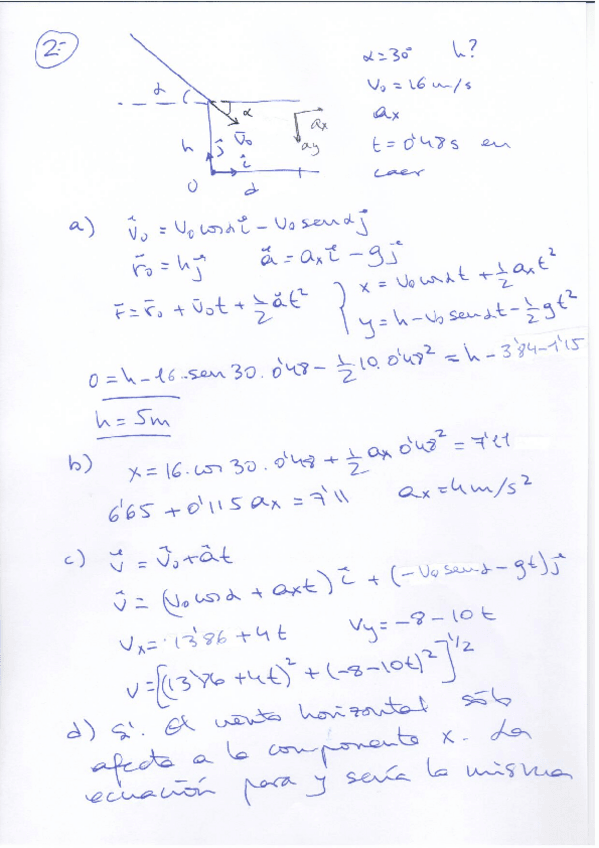 2=
α=30º h?
V₀=16m/s
ax
t=0'48s en
caer
α
α
ax
ay
h
j
V̄₀
i
O
d
a) v⃗₀ = v₀ cosα i⃗ - v₀ senα j⃗
r̄₀ = h j⃗ a⃗ = ax i⃗ - g j⃗
r̄ = r̄₀ + v̄₀t + 1/2 a⃗t² { x = v₀ cosαt + 1/2 axt²
y = h - v₀ senαt - 1/2 gt²
0 = h - 16·sen 30·0'48 - 1/2 10·0'48² = h - 3'84 - 1'15
h = 5m
b) x = 16·cos 30·0'48 + 1/2 ax 0'48² = 7'11
6'65 + 0'115 ax = 7'11 ax = 4m/s²
c) v⃗ = v⃗₀ + a⃗t
v⃗ = (v₀ cosα + axt) i⃗ + (-v₀ senα - gt) j⃗
Vx = 13'86 + 4t Vy = -8 - 10t
V = [(13'86 + 4t)² + (-8 - 10t)²]^1/2
d) Sí. El viento horizontal sólo
afecta a la componente x. La
ecuación para y sería la misma